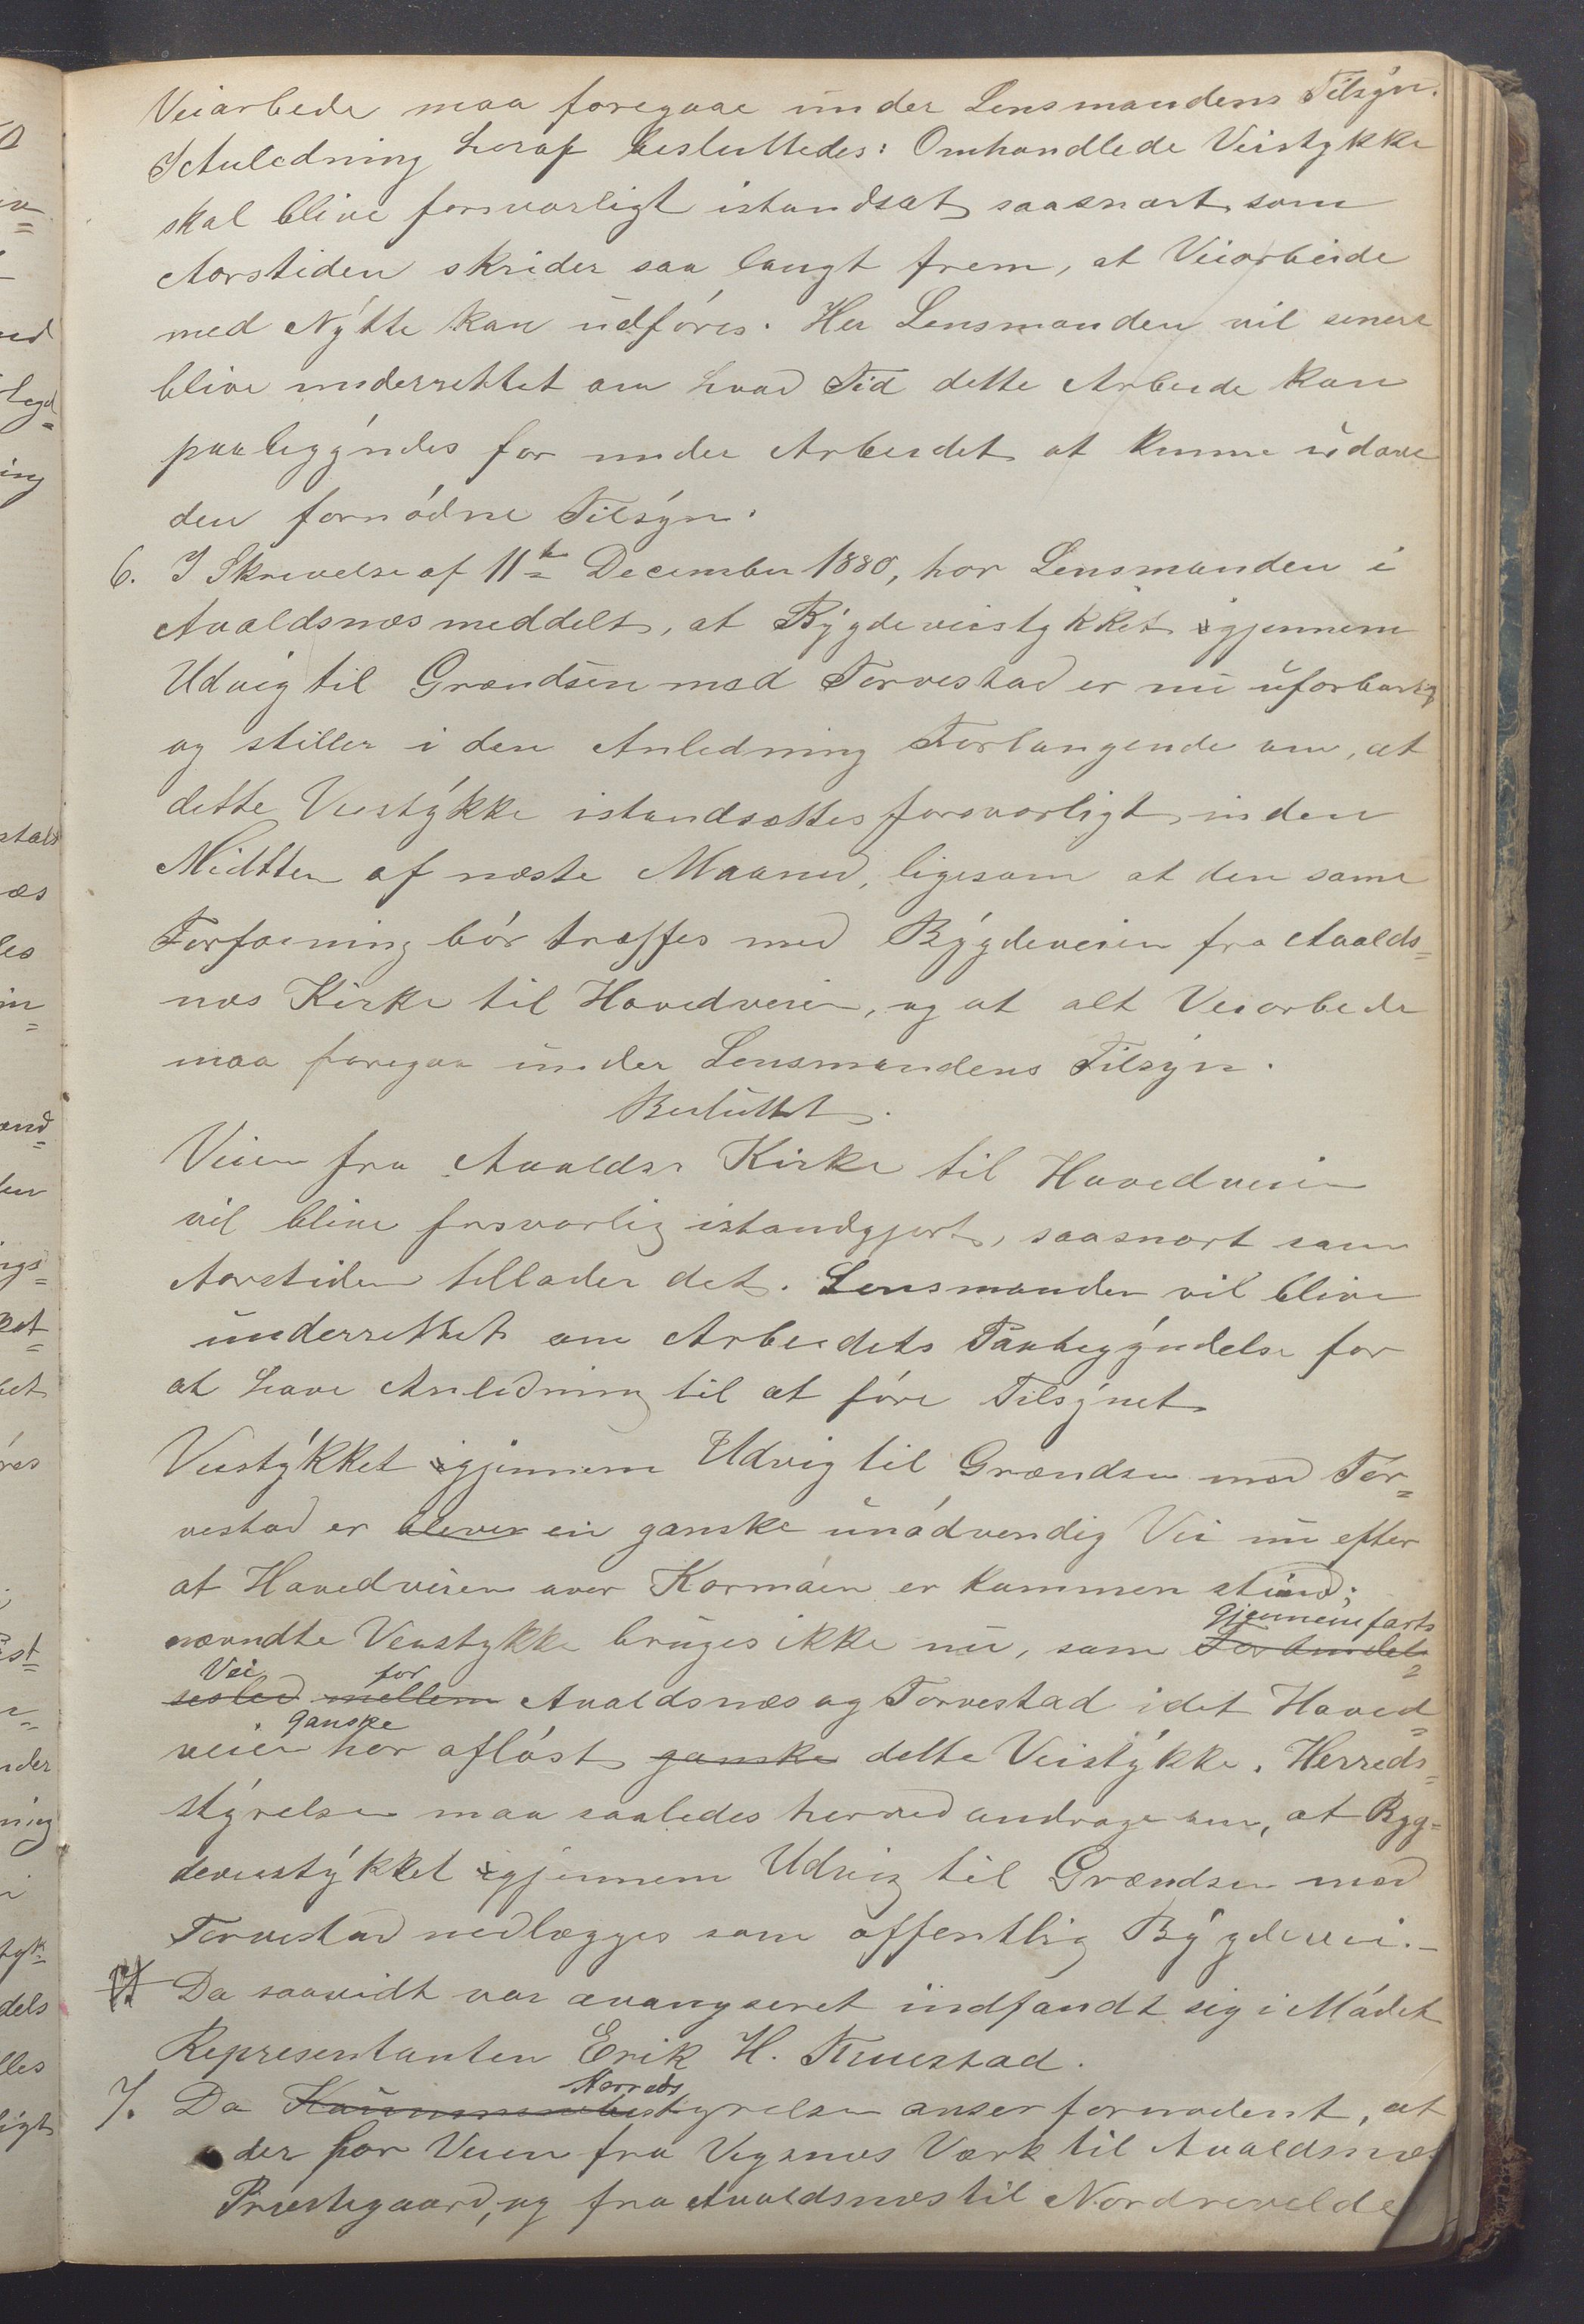 Veiarbede maa foregaae under Lensmandens Tilsyn.
I Anledning heraf besluttedes: Omhandlede Veistykke
skal blive forsvarligt istandsat saasnart som
Aarstiden skrider saa langt frem, at Veiarbeide
med Nytte kan udføres. Her Lensmanden vil senere
blive underrettet om hvad Tid dette Arbeide kan
paabegyndes for under Arbeidet at kunne udøve
den fornødne Tilsyn.
6. I Skrivelse af 11te December 1880, har Lensmanden i
Avaldsnæs meddelt, at Bygdeveistykket igjennem
Udvig til Grændsen mod Torvestad er nu uforbarlig
og stiller i den Anledning Forlangende om, at
dette Veistykke istandsættes forsvarligt inden
Midtten af næste Maaned, ligesom at den same
Forføining bør træffes med Bygdeveien fra Avalds=
næs Kirke til Hovedveien, og at alt Veiarbede
maa foregaa under Lensmandens Tilsyn.
Besluttet.
Veien fra Avaldss Kirke til Hovedveien
vil blive forsvarlig istandgjort, saasnart som
Aarstiden tillader det. Lensmanden vil blive
underrettet om Arbeidets Paabegyndelse for
at have Anledning til at føre Tilsynet
Veistykket igjennem Udvig til Grændsen mod Tor=
vestad er bliver en ganske unødvendig Vei nu efter
at Hovedveien over Karmøen er kommen istand;
nævndte Veistykke bruges ikke nu, som Gjennemfarts
Vei for
mellem Avaldsnæs og Torvestad idet Hoved=
ganske
veien har afløst ganske dette Veistykke. Herreds=
styrelsen maa saaledes herved andrage om, at Byg=
deveistykket igjennem Udvig til Grændsen mod
Torvestad nedlægges som offentlig Bygdevei.-
7. Da saavidt var avangseret indfandt sig i Mødet
Representanten Erik H. Tuestad.
Herreds
7. Da Kommunebestyrelsen anser fornødent, at
der for Veien fra Vigsnæs Værk til Avaldsnæs
Præstegaard, og fra Avaldsnæs til Nordrevelde